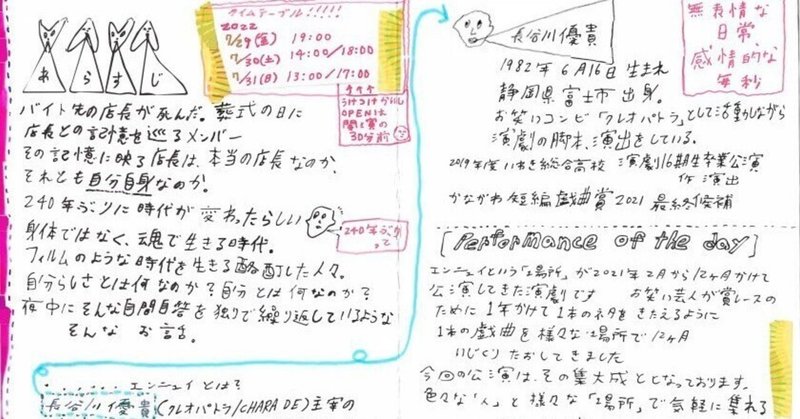 あらすじ
バイト先の店長が死んだ。葬式の日に
店長との記憶を巡るメンバー
その記憶に映る店長は、本当の店長なのか、
それとも自分自身なのか。
240年ぶりに時代が変わったらしい
身体ではなく、魂で生きる時代。
フィルムのような時代を生きる酩酊した人々。
自分らしさとは何なのか?自分とは何なのか?
夜中にそんな自問自答を独りで繰り返しているような
そんなお話。
240年ぶりって
タイムテーブル!!!!!
2022
7/29(金) 19:00
7/30(土) 14:00/18:00
7/31(日) 13:00/17:00
うけつけかいし
OPENは
開演の
30分前
・・・・・・エンニュイとは?
長谷川優貴(クレオパトラ/CHARA DE)主宰の
長谷川優貴
1982年6月16日生まれ
静岡県富士市出身。
お笑いコンビ「クレオパトラ」として活動しながら
演劇の脚本、演出をしている。
2019年度いわき総合高校 演劇16期生卒業公演
作 演出
かながわ短編戯曲賞2021 最終候補
無表情な
日常
感情的な
毎秒
[Performance of the day]
エンニュイという「場所」が2021年2月から12ヶ月かけて
公演してきた演劇です お笑い芸人が賞レースの
ために1年かけて1本のネタをきたえるように
1本の戯曲を様々な場所で12ヶ月
いじくりたおしてきました
今回の公演は、その集大成となっております。
色々な「人」と様々な「場所」で気軽に集れる